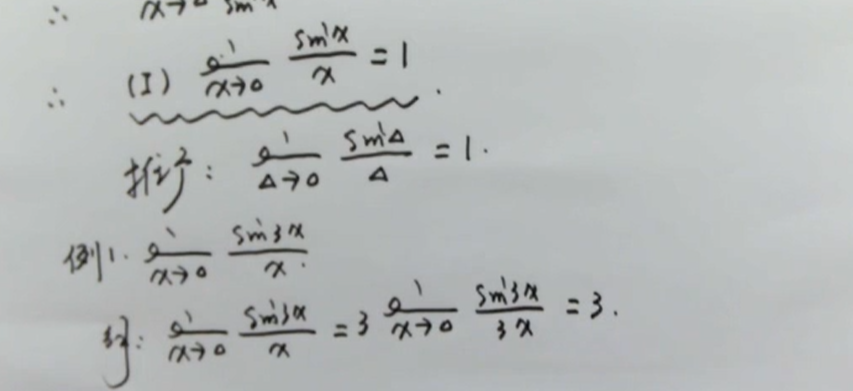 ∴ x→0 sin x
∴ (I) lim x→0 sin x / x = 1.
推广: lim Δ→0 sin Δ / Δ = 1.
例1. lim x→0 sin 3x / x.
解: lim x→0 sin 3x / x = 3 lim x→0 sin 3x / 3x = 3.